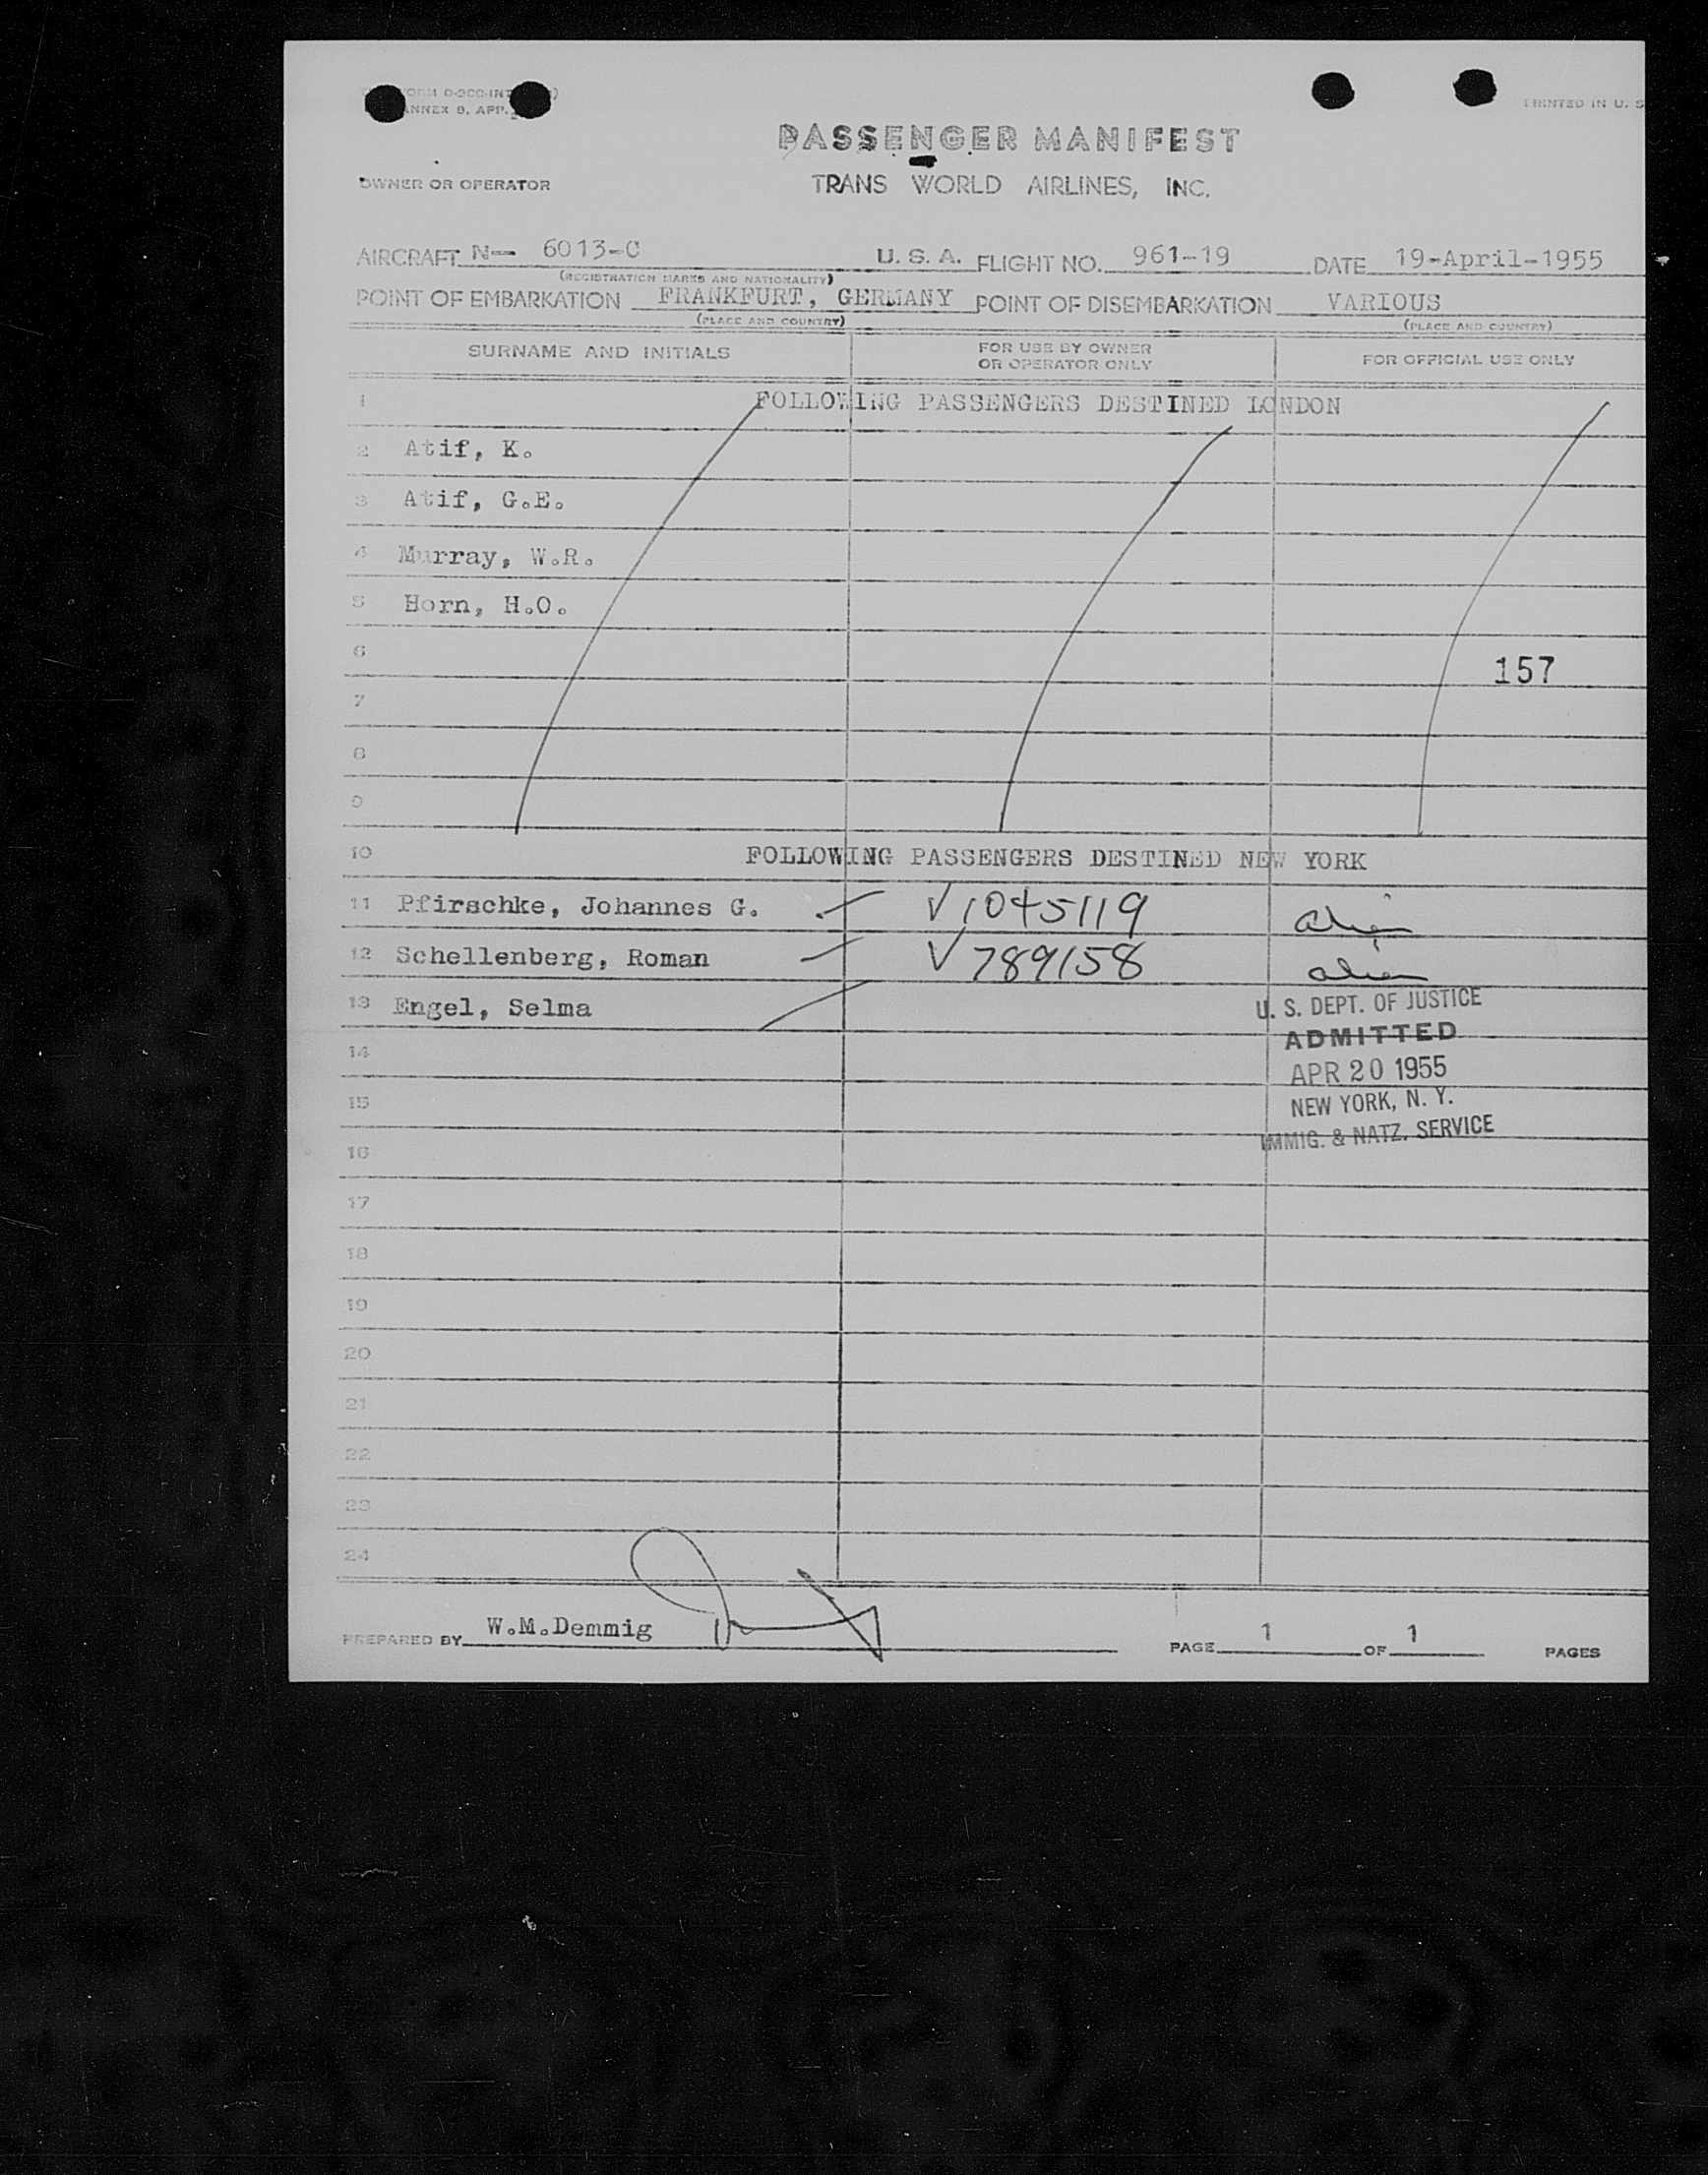 ANNEX 9, APP.
PRINTED IN U. S
PASSENGER MANIFEST
OWNER OR OPERATOR TRANS WORLD AIRLINES, INC.
AIRCRAFT N-- 6013-C U. S. A. FLIGHT NO. 961-19 DATE 19-April-1955
(REGISTRATION MARKS AND NATIONALITY)
POINT OF EMBARKATION FRANKFURT, GERMANY POINT OF DISEMBARKATION VARIOUS
(PLACE AND COUNTRY) (PLACE AND COUNTRY)
SURNAME AND INITIALS FOR USE BY OWNER OR OPERATOR ONLY FOR OFFICIAL USE ONLY
1 FOLLOWING PASSENGERS DESTINED LONDON
2 Atif, K.
3 Atif, G.E.
4 Murray, W.R.
5 Horn, H.O.
6
157
7
8
9
10 FOLLOWING PASSENGERS DESTINED NEW YORK
11 Pfirschke, Johannes G. V1045119 alien
12 Schellenberg, Roman V789158 alien
13 Engel, Selma
U. S. DEPT. OF JUSTICE
ADMITTED
14
APR 20 1955
15
NEW YORK, N. Y.
IMMIG. & NATZ. SERVICE
16
17
18
19
20
21
22
23
24
PREPARED BY W.M.Demmig PAGE 1 OF 1 PAGES